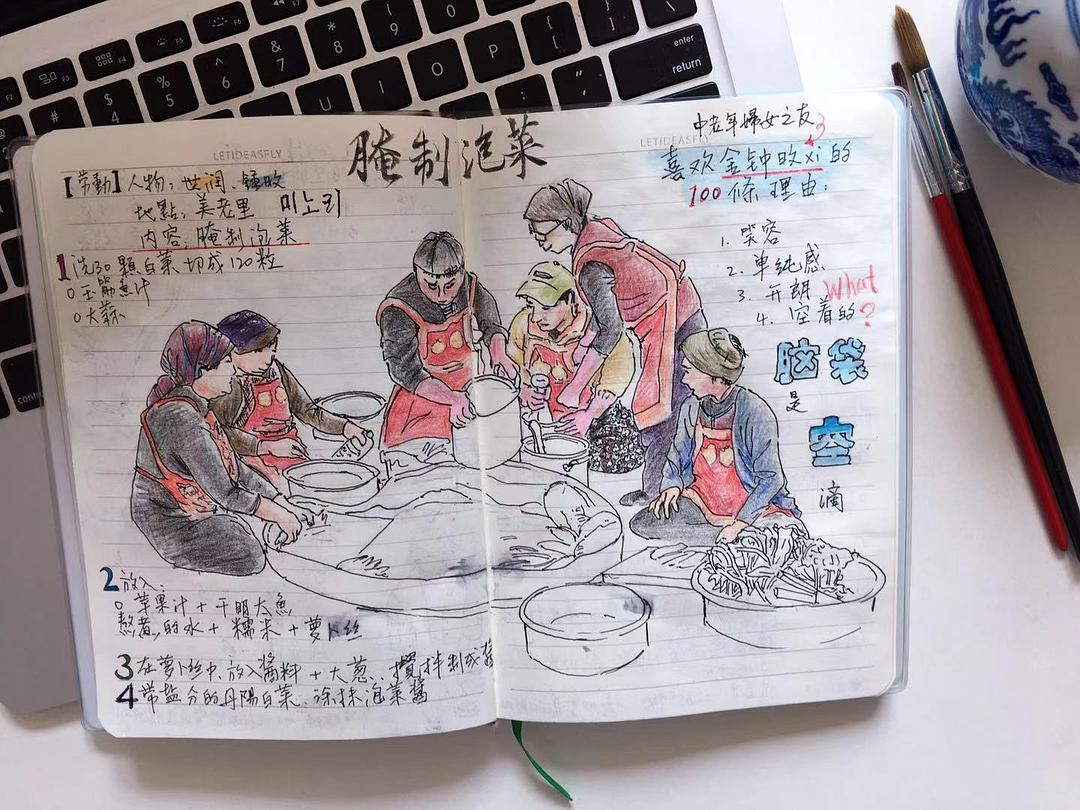 腌制泡菜
LETIDEASFLY
【劳動】人物：世润、鍾旼
地點：美老里 미노리
内容：腌制泡菜
1 洗30顆白菜切成120粒
O 玉筋魚汁
O 大蒜
2 放入：
O 苹果汁+干明太魚
熬煮的水+糯米+萝卜丝
3 在萝卜丝中放入醬料+大葱、攪拌制成
4 带盐分的丹陽白菜、涂抹泡菜醬
中老年婦女之友
LETIDEASFLY
喜欢金钟旼xi的
100條理由：
1. 笑容
2. 单纯感
3. 开朗
4. 空着的
What
?
脑袋
是
空
滴
enter
return
P
O
I
U
$
4
%
5
^
6
&
7
*
8
(
9
)
0